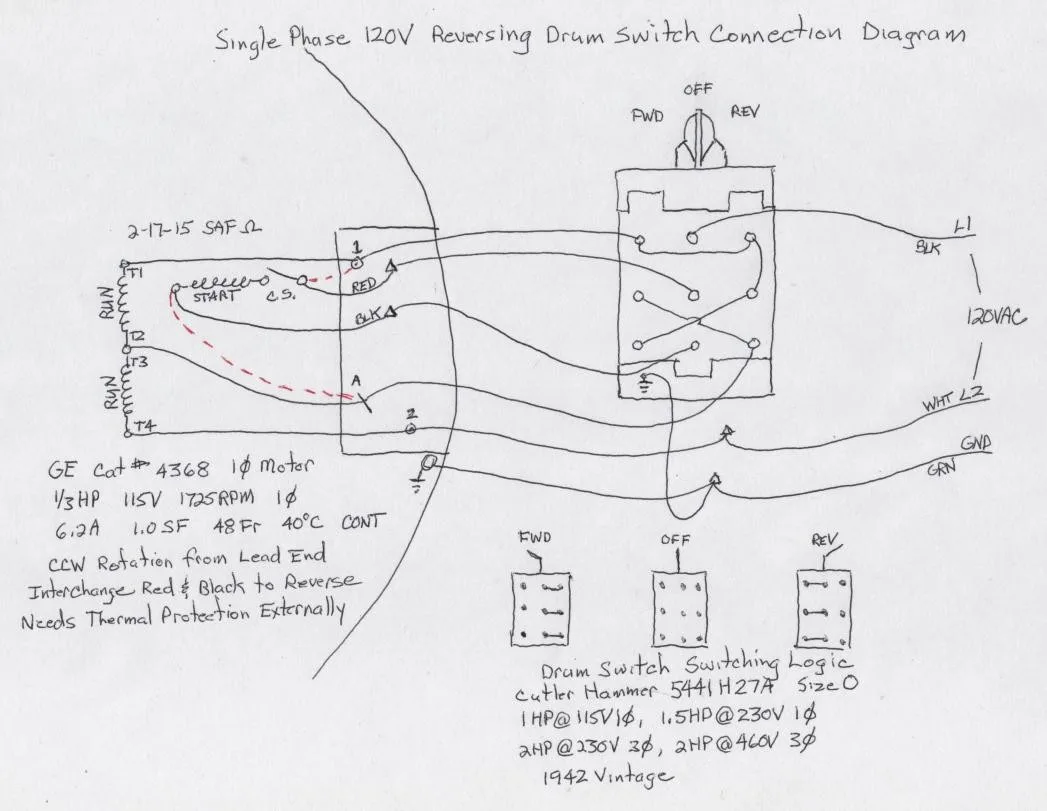 Single Phase 120V Reversing Drum Switch Connection Diagram
OFF
FWD REV
2-17-15 SAF Ω
L1
BLK
1
T1
RED
START C.S.
RUN
BLK
120VAC
T2
T3
A
RUN
WHT L2
2
T4
GND
GRN
GE Cat# 4368 1Ø Motor
1/3HP 115V 1725RPM 1Ø
6.2A 1.0SF 48Fr 40°C CONT
CCW Rotation from Lead End
Interchange Red & Black to Reverse
Needs Thermal Protection Externally
FWD OFF REV
Drum Switch Switching Logic
Cutler Hammer 5441H27A Size 0
1HP@115V1Ø, 1.5HP@230V 1Ø
2HP@230V 3Ø, 2HP@460V 3Ø
1942 Vintage